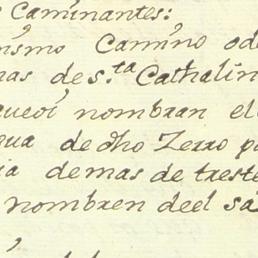 Caminantes:
ismo Camino ode
mas de s.ta Cathalin
nombran el
gua de dho Zerro p
ia demas de treste
nombren deel sa